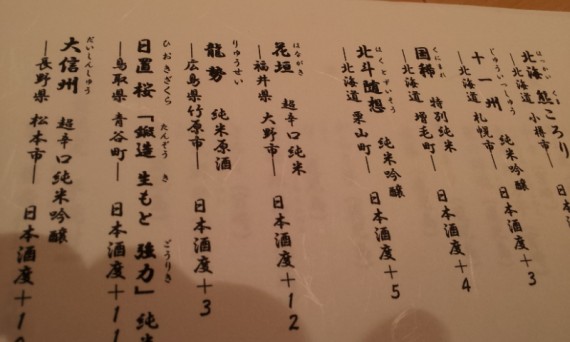 日本
ほっかい くま
北海 熊ころり
―北海道 小樽市―
じゅういっしゅう
十一州 純米吟醸
―北海道 札幌市― 日本酒度+3
くにまれ
国稀 特別純米
―北海道 増毛町― 日本酒度+4
ほくとずいそう
北斗随想 純米吟醸
―北海道 栗山町― 日本酒度+5
はながき
花垣 超辛口純米
―福井県 大野市― 日本酒度+12
りゅうせい
龍勢 純米原酒
―広島県竹原市― 日本酒度+3
ひおきざくら たんぞう き ごうりき
日置桜「鍛造 生もと 強力」純米
―鳥取県 青谷町― 日本酒度+11
だいしんしゅう
大信州 超辛口純米吟醸
―長野県 松本市― 日本酒度+1